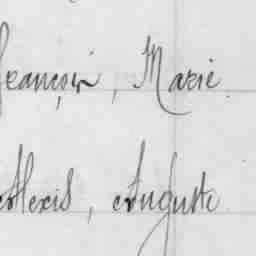 François, Marie
Alexis, Auguste